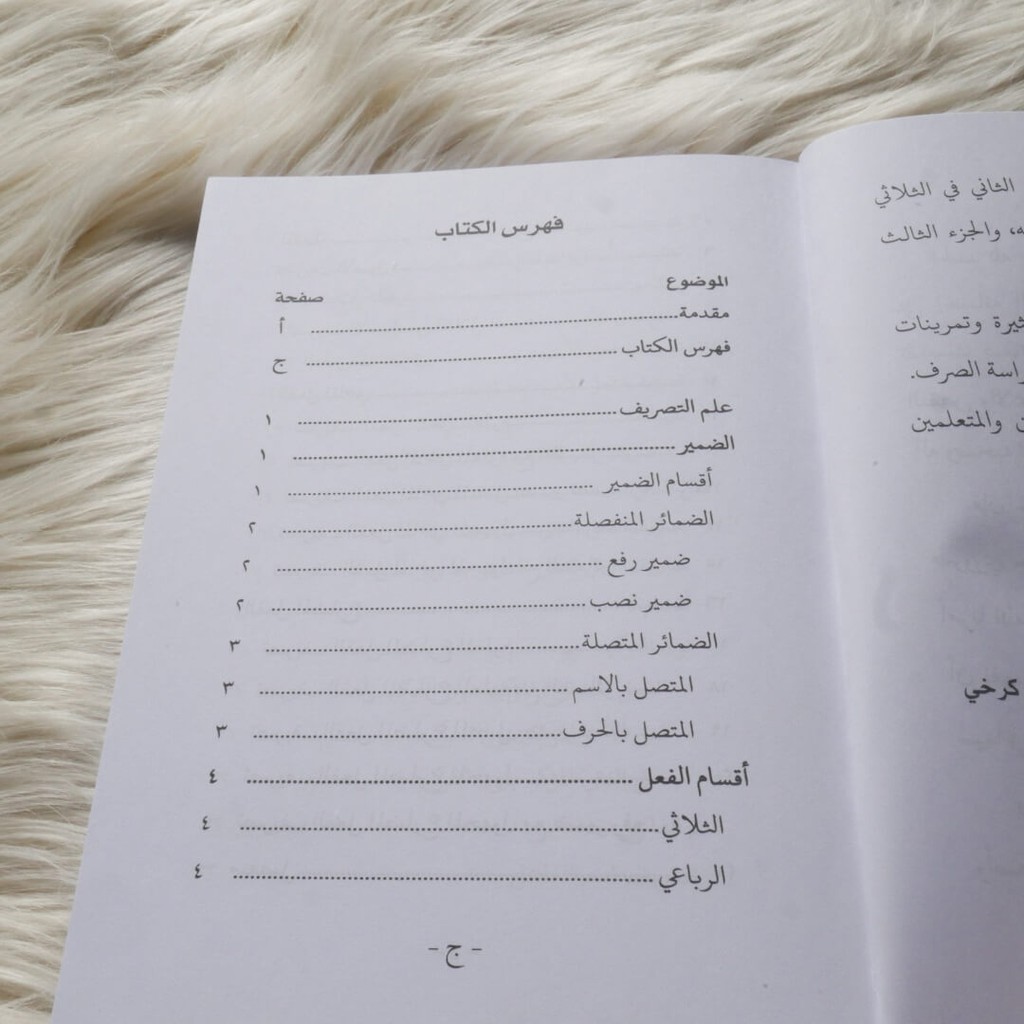 الثاني في الثلاثي
والجزء الثالث
وتمرينات
الصرف.
والمتعلمين
كرخي
فهرس الكتاب
الموضوع صفحة
مقدمة................ أ
فهرس الكتاب................ ج
علم التصريف................ ١
الضمير................ ١
أقسام الضمير ................ ١
الضمائر المنفصلة................ ٢
ضمير رفع ................ ٢
ضمير نصب................ ٢
الضمائر المتصلة................ ٣
المتصل بالاسم................ ٣
المتصل بالحرف................ ٣
أقسام الفعل ................ ٤
الثلاثي................ ٤
الرباعي................ ٤
- ج -